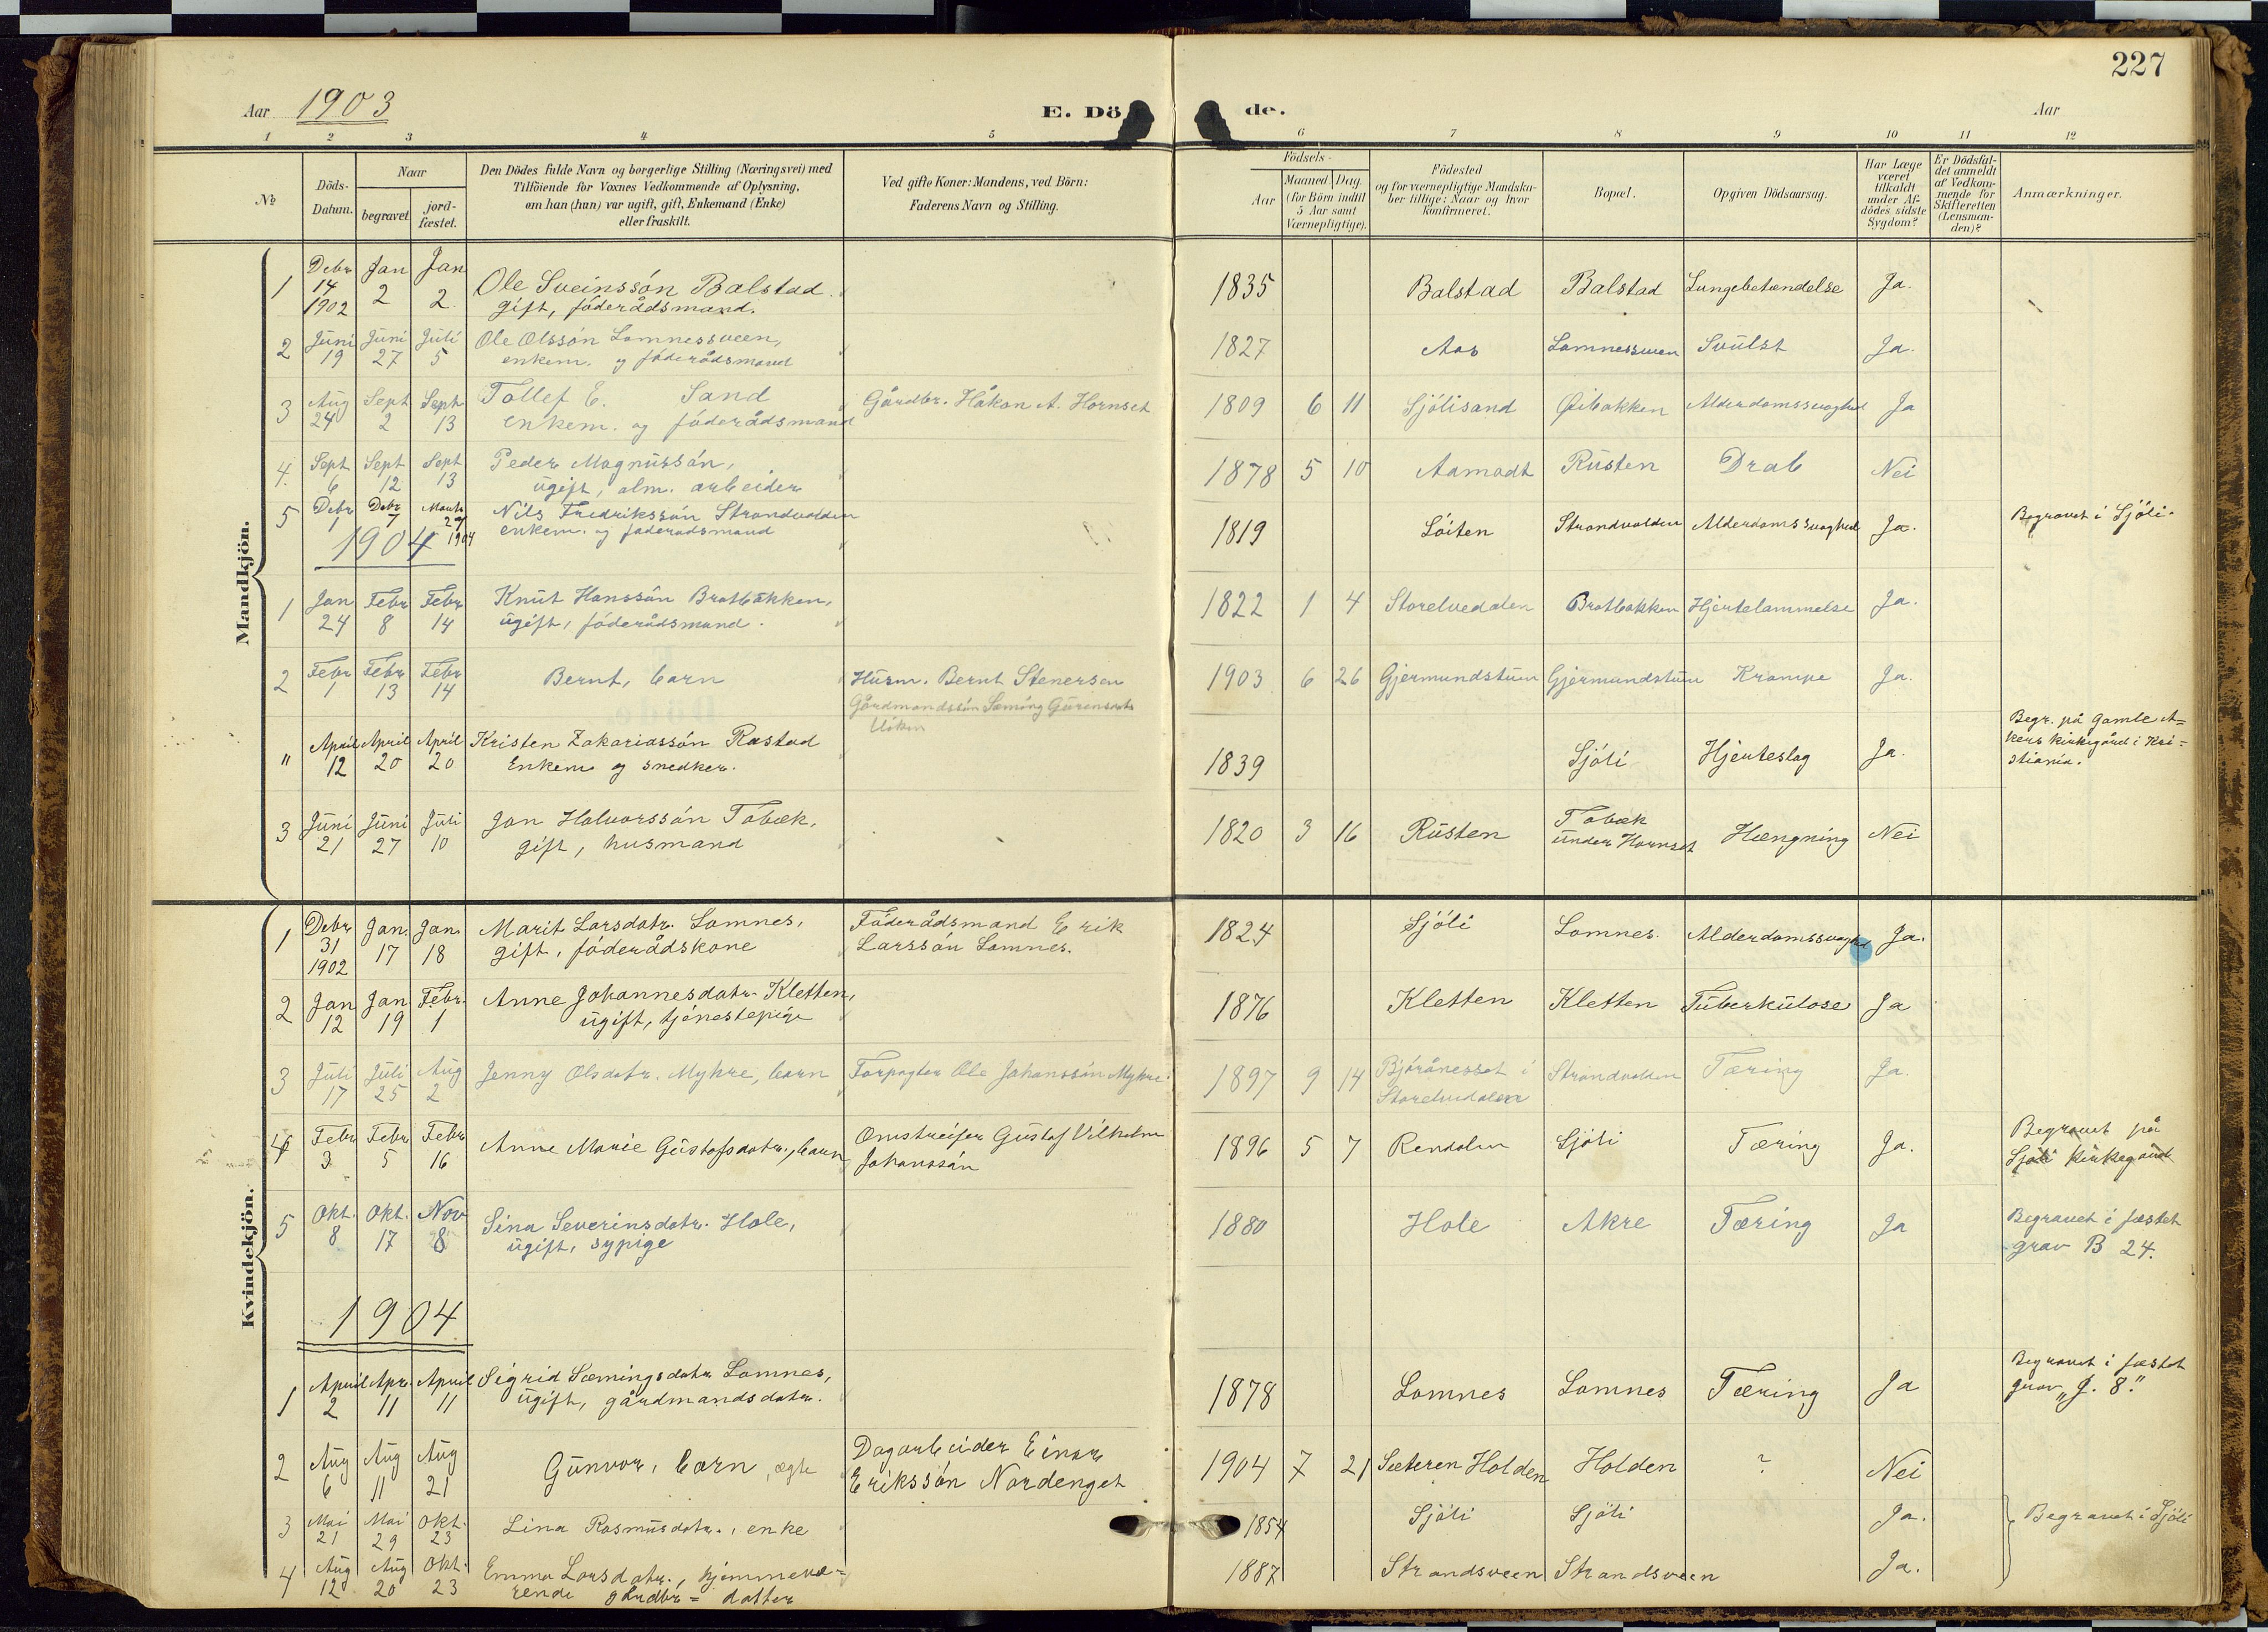 227
Aar 1903
E. Dö de.
Aar
1 2 3 4 5 6 7 8 9 10 11 12
№
Döds-
Datum.
Naar
begravet.
jord-
fæstet.
Den Dödes fulde Navn og borgerlige Stilling (Næringsvei) med
Tilföiende for Voxnes Vedkommende af Oplysning,
om han (hun) var ugift, gift, Enkemand (Enke)
eller fraskilt.
Ved gifte Koner: Mandens, ved Börn:
Faderens Navn og Stilling.
Födsels-
Aar
Maaned Dag
(for Börn indtil
5 Aar samt
Værnepligtige).
Födested
og for værnepligtige Mandska-
ber tillige: Naar og hvor
konfirmeret.
Bopæl.
Opgiven Dödsaarsag.
Har Læge
været
tilkaldt
under Af-
dödes sidste
Sygdom?
Er Dödsfal-
det anmeldt
af Vedkom-
mende for
Skifteretten
(Lensman-
den)?
Anmærkninger.
Mandkjön.
1 Debr 14 1902 Jan 2 Jan 2 Ole Sveinssön Balstad
gift, föderådsmand. 1835 Balstad Balstad Lungebetændelse Ja.
2 Juni 19 Juni 27 Juli 5 Ole Olssön Lomnessveen,
enkem. og föderådsmand 1827 Aas Lomnessveen Svulst Ja.
3 Aug 24 Sept 2 Sept 13 Tollef E. Sand
enkem. og föderådsmand Gårdbr. Håkon A. Hornset 1809 6 11 Sjölisand Öibakken Alderdomssvaghed Ja
4. Sept 6 Sept 12 Sept 13 Peder Magnussön,
ugift, alm. arbeider 1878 5 10 Aamodt Rusten Drab Nei
5 Debr 1 Debr 7 Marts 27 1904 Nils Fredrikssön Strandvolden
enkem. og föderådsmand 1819 Löiten Strandvolden Alderdomssvaghed Ja. Begravet i Sjöli.
1904
1 Jan 24 Febr 8 Febr 14 Knut Hanssön Bratbakken,
ugift, föderådsmand. 1822 1 4 Storelvedalen Bratbakken Hjertelammelse Ja.
2 Febr 1 Febr 13 Febr 14 Bernt, barn Husm. Bernt Stenersen
Gårdmandssön Sæming
1903 6 26 Gjermundstuen Gjermundstuen Krampe Ja.
" April 12 April 20 April 20 Kristen Zakariassön Rastad
Enkem og snedker. 1839 Sjöli Hjerteslag Ja. Begr. på Gamle A=
kers kirkegård i Kri=
stiania.
3 Juni 21 Juni 27 Juli 10 Jon Halvorssön Tobæk,
gift, husmand 1820 3 16 Rusten Tobæk
under Hornset Hængning Nei
Kvindekjön.
1 Debr 31 1902 Jan. 17 Jan. 18 Marit Larsdatr. Lomnes,
gift, föderådskone Föderådsmand Erik
Larssön Lomnes. 1824 Sjöli Lomnes. Alderdomssvaghed Ja.
2 Jan 12 Jan 19 Febr. 1 Anne Johannesdatr. Kletten,
ugift, tjenestepige 1876 Kletten Kletten Tuberkulose Ja
3 Juli 17 Juli 25 Aug 2 Jenny Olsdatr. Myhre, barn Forpagter Ole Johanssön Myhre. 1897 9 14 Björåneset i
Storelvedalen Strandvolden Tæring Ja.
4 Febr 3 Febr 5 Febr 16 Anne Marie Gustafsdatr., barn Omstreifer Gustaf Vilhelm
Johanssön 1896 5 7 Rendalen Sjöli Tæring Ja. Begravet på
Sjöli kirkegård
5 Okt. 8 Okt. 17 Nov 8 Sina Severinsdatr. Hole,
ugift, sypige 1880 Hole Akre Tæring Ja Begravet i fæstet
grav B 24.
1904
1 April 2 Apr. 11 April 11 Sigrid Sæmingsdatr Lomnes,
ugift, gårdmandsdatr. 1878 Lomnes Lomnes Tæring Ja Begravet i fæstet
grav „J. 8."
2 Aug 6 Aug 11 Aug 21 Gunvor, barn, ægte Dagarbeider Einar
Erikssön Nordenget 1904 7 21 Sæteren Holden Holden ? Nei
3 Mai 21 Mai 29 Okt. 23 Lina Rasmusdatr., enke 1854 Sjöli Sjöli Ja. Begravet i Sjöli
4 Aug 12 Aug 20 Okt. 23 Emma Larsdatr., hjemmevæ=
rende gårdbr= datter 1887 Strandsveen Strandsveen Ja.